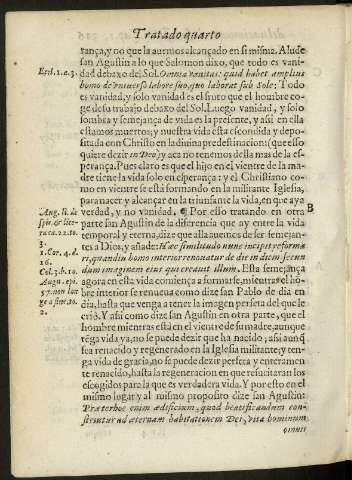 Tratado quarto
rança, y no que la auemos alcançado en si misma. Alude
san Agustin a lo que Salomon dixo, que todo es vani-
Eccl. 1. a. 3.
dad debaxo del Sol. Omnia vanitas: quid habet amplius
homo de vniuerso labore suo, quo laborat sub Sole: Todo
es vanidad, y solo vanidad es el fruto que el hombre co-
ge de su trabajo debaxo del Sol. Luego vanidad, y solo
sombra y semejança de vida es la presente, y assi en ella
estamos muertos; y nuestra vida esta escondida y depo-
sitada con Christo en la diuina predestinacion: (que esso
quiere dezir in Deo) y aca no tenemos della mas de la es-
perança. Pues claro es que el hijo en el vientre de la ma-
dre tiene la vida solo en esperança: y el Christiano co-
mo en vientre se està formando en la militante Iglesia,
para nacer y alcançar en la triunfante la vida, en que aya
Aug. li. de spir. & lite-
verdad, y no vanidad. ¶ Por esso tratando en otra
B
ra. ca. 22. to.
parte san Agustin de la diferencia que ay entre la vida
3.
temporal y eterna, dize que alla auemos de ser semejan-
1. Cor. 4. d.
tes a Dios, y añade: Hæc similitudo nunc incipit reforma
16.
ri, quandiu homo interior renouatur de die in diem secun
Col. 3. b. 10.
dum imaginem eius qui creauit illum. Esta semejança
Aug. epi.
agora en esta vida comiença a formarse, mientras el hõ-
57. non lon
bre interior se renueua como dize san Pablo de dia en
ge a fin. to.
dia, hasta que venga a tener la imagen perfeta del que le
2.
criò. Y assi como dize san Agustin en otra parte, que el
hombre mientras està en el vientre de su madre, aunque
tẽga vida ya, no se puede dezir que ha nacido; assi aunq̃
sea renacido y regenerado en la Iglesia militante, y ten-
ga vida de gracia, no se puede dezir perfeta y enteramen
te renacido, hasta la regeneracion en que resucitaran los
escogidos para la que es verdadera vida. Y por esto en el
mismo lugar y al mismo proposito dize san Agustin:
Præter hoc enim ædificium, quod beatificandum con-
struitur ad æternam habitationem Dei, vita hominum
omnis